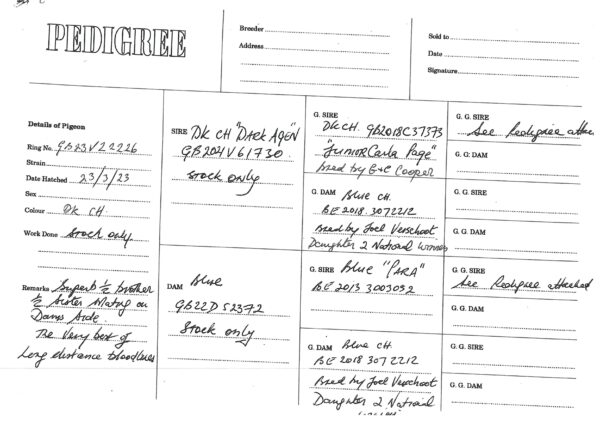 PEDIGREE
Breeder
Address
Sold to
Date
Signature
Details of Pigeon
Ring No. GB23V22226
Strain
Date Hatched 23/3/23
Sex
Colour DK CH
Work Done Stock only
Remarks Superb ½ brother
½ sister Mating on
Dams side.
The Very best of
Long distance bloodlines
SIRE DK CH "DARK AGEN"
GB20V61730
stock only
DAM Blue
GB22D52372
Stock only
G. SIRE
DK CH. GB2018C37373
"JUNIOR Carla Page"
bred by G+C Cooper
G. DAM Blue CH.
BE 2018. 3072212
Bred by Joel Verschoot
Daughter 2 National Winners
G. SIRE Blue "PARA"
BE 2013 3003052
G. DAM Blue CH
BE 2018 3072212
Bred by Joel Verschoot
Daughter 2 National
G. G. SIRE
See Pedigree attached
G. G. DAM
G. G. SIRE
G. G. DAM
G. G. SIRE
See Pedigree attached
G. G. DAM
G. G. SIRE
G. G. DAM